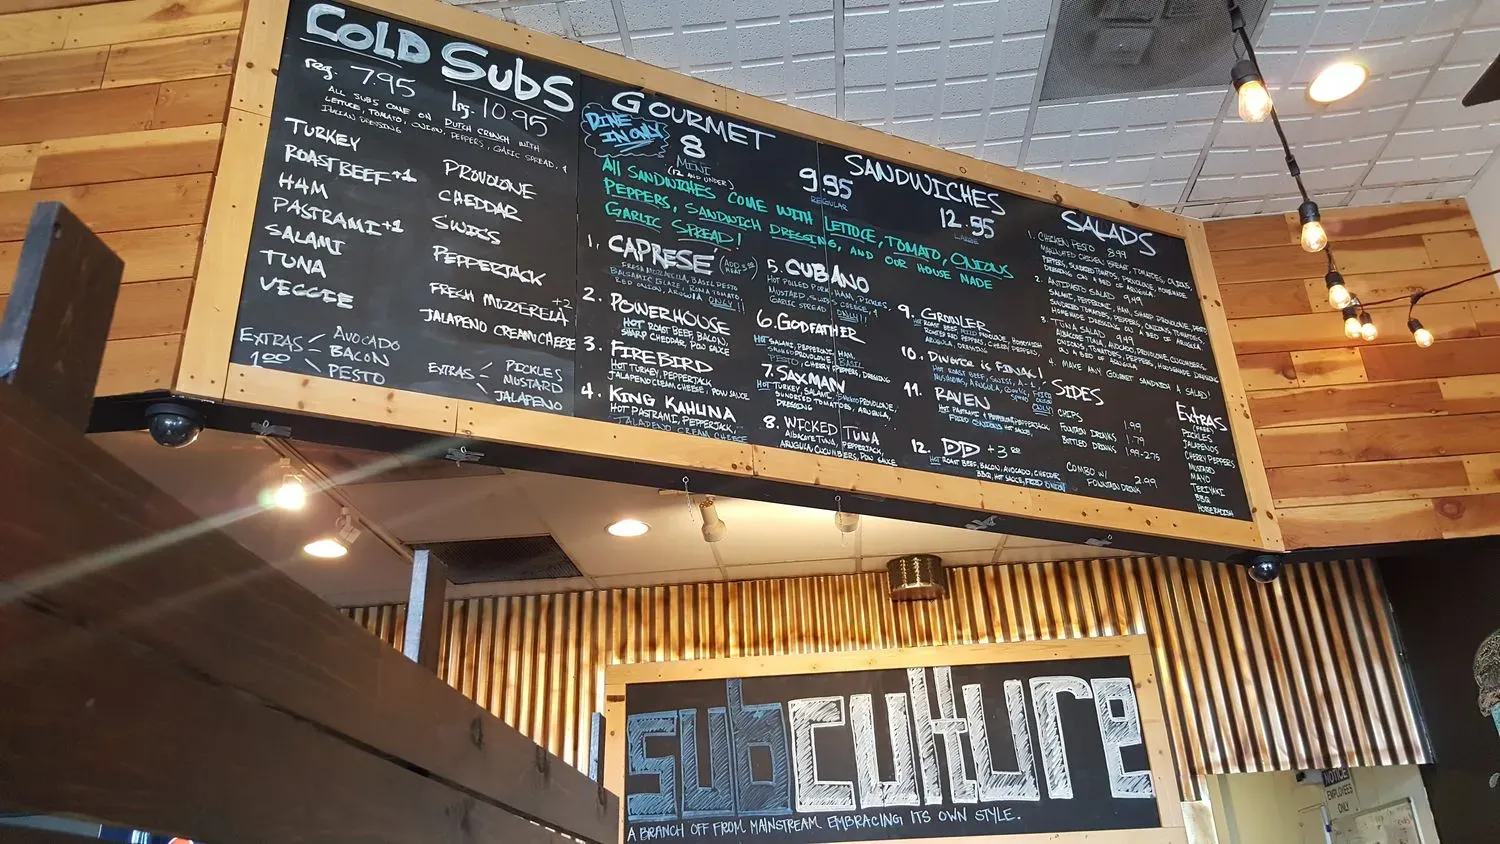 COLD SUBS
reg. 7.95 lrg. 10.95
ALL SUBS COME ON DUTCH CRUNCH WITH
LETTUCE, TOMATO, ONION, PEPPERS, GARLIC SPREAD, &
ITALIAN DRESSING
TURKEY
ROAST BEEF +1
HAM
PASTRAMI +1
SALAMI
TUNA
VEGGIE
PROVOLONE
CHEDDAR
SWISS
PEPPERJACK
FRESH MOZZERELA +2
JALAPENO CREAM CHEESE
EXTRAS
1.00
AVOCADO
BACON
PESTO
EXTRAS
PICKLES
MUSTARD
JALAPENO
GOURMET SANDWICHES
DINE
IN ONLY
8
MINI
(12 AND UNDER)
9.95
REGULAR
12.95
LARGE
All SANDWICHES COME WITH LETTUCE, TOMATO, ONIONS
PEPPERS, SANDWICH DRESSING, AND OUR HOUSE MADE
GARLIC SPREAD!
1. CAPRESE
FRESH MOZZARELLA, BASIL PESTO
BALSAMIC GLAZE, ROMA TOMATO
RED ONION, ARUGULA ONLY!!
2. POWERHOUSE
HOT ROAST BEEF, BACON,
SHARP CHEDDAR, POW SAUCE
3. FIREBIRD
HOT TURKEY, PEPPERJACK
JALAPENO CREAM CHEESE, POW SAUCE
4. KING KAHUNA
HOT PASTRAMI, PEPPERJACK,
JALAPENO CREAM CHEESE
5. CUBANO
HOT PULLED PORK, HAM, PICKLES,
MUSTARD, SWISS CHEESE, &
GARLIC SPREAD ONLY!!
6. GODFATHER
HOT SALAMI, PEPPERONI, HAM,
SMOKED PROVOLONE, BASIL
PESTO, CHERRY PEPPERS, DRESSING
7. SAXMAN
HOT TURKEY, SALAMI, SMOKED PROVOLONE,
SUNDRIED TOMATOES, ARUGULA,
DRESSING
8. WICKED TUNA
ALBACORE TUNA, PEPPERJACK,
ARUGULA, CUCUMBERS, POW SAUCE
9. GROWLER
HOT ROAST BEEF, PROVOLONE, HORSERADISH
ROASTED PEPPERS, CHERRY PEPPERS,
ARUGULA, DRESSING
10. DIVORCE is FINAL!
HOT ROAST BEEF, SWISS, A-1, FRIED ONION
MUSHROOMS, ARUGULA, GARLIC SPREAD ONLY!
11. RAVEN
HOT PASTRAMI & PEPPERONI, PEPPERJACK,
FRIED ONIONS, HOT SAUCE,
12. DD +3
HOT ROAST BEEF, BACON, AVOCADO, CHEDDAR
BBQ, HOT SAUCE, FRIED ONION
SALADS
1. CHICKEN PESTO 8.99
MARINATED CHICKEN BREAST, TOMATOES, ONIONS,
PEPPERS, SUNDRIED TOMATOES, PROVOLONE, HOMEMADE
DRESSING ON A BED OF ARUGULA
2. ANTIPASTO SALAD 9.49
SALAMI, PEPPERONI, HAM, SHARP PROVOLONE, PESTO
SUNDRIED TOMATOES, PEPPERS, ONIONS, TOMATOES,
HOMEMADE DRESSING ON A BED OF ARUGULA
3. TUNA SALAD 9.49
ALBACORE TUNA, AVOCADO, PROVOLONE, CUCUMBERS,
ONIONS, TOMATOES, PEPPERS, HOUSEMADE DRESSING
ON A BED OF ARUGULA
4. MAKE ANY GOURMET SANDWICH A SALAD!
SIDES
CHIPS 1.99
FOUNTAIN DRINKS 1.79
BOTTLED DRINKS 1.99-2.75
COMBO W/
FOUNTAIN DRINK 2.99
EXTRAS
(FREE)
PICKLES
JALAPENOS
CHERRY PEPPERS
MUSTARD
MAYO
TERIYAKI
BBQ
HORSERADISH
subculture
A BRANCH OFF FROM MAINSTREAM EMBRACING ITS OWN STYLE.
NOTICE
EMPLOYEES
ONLY